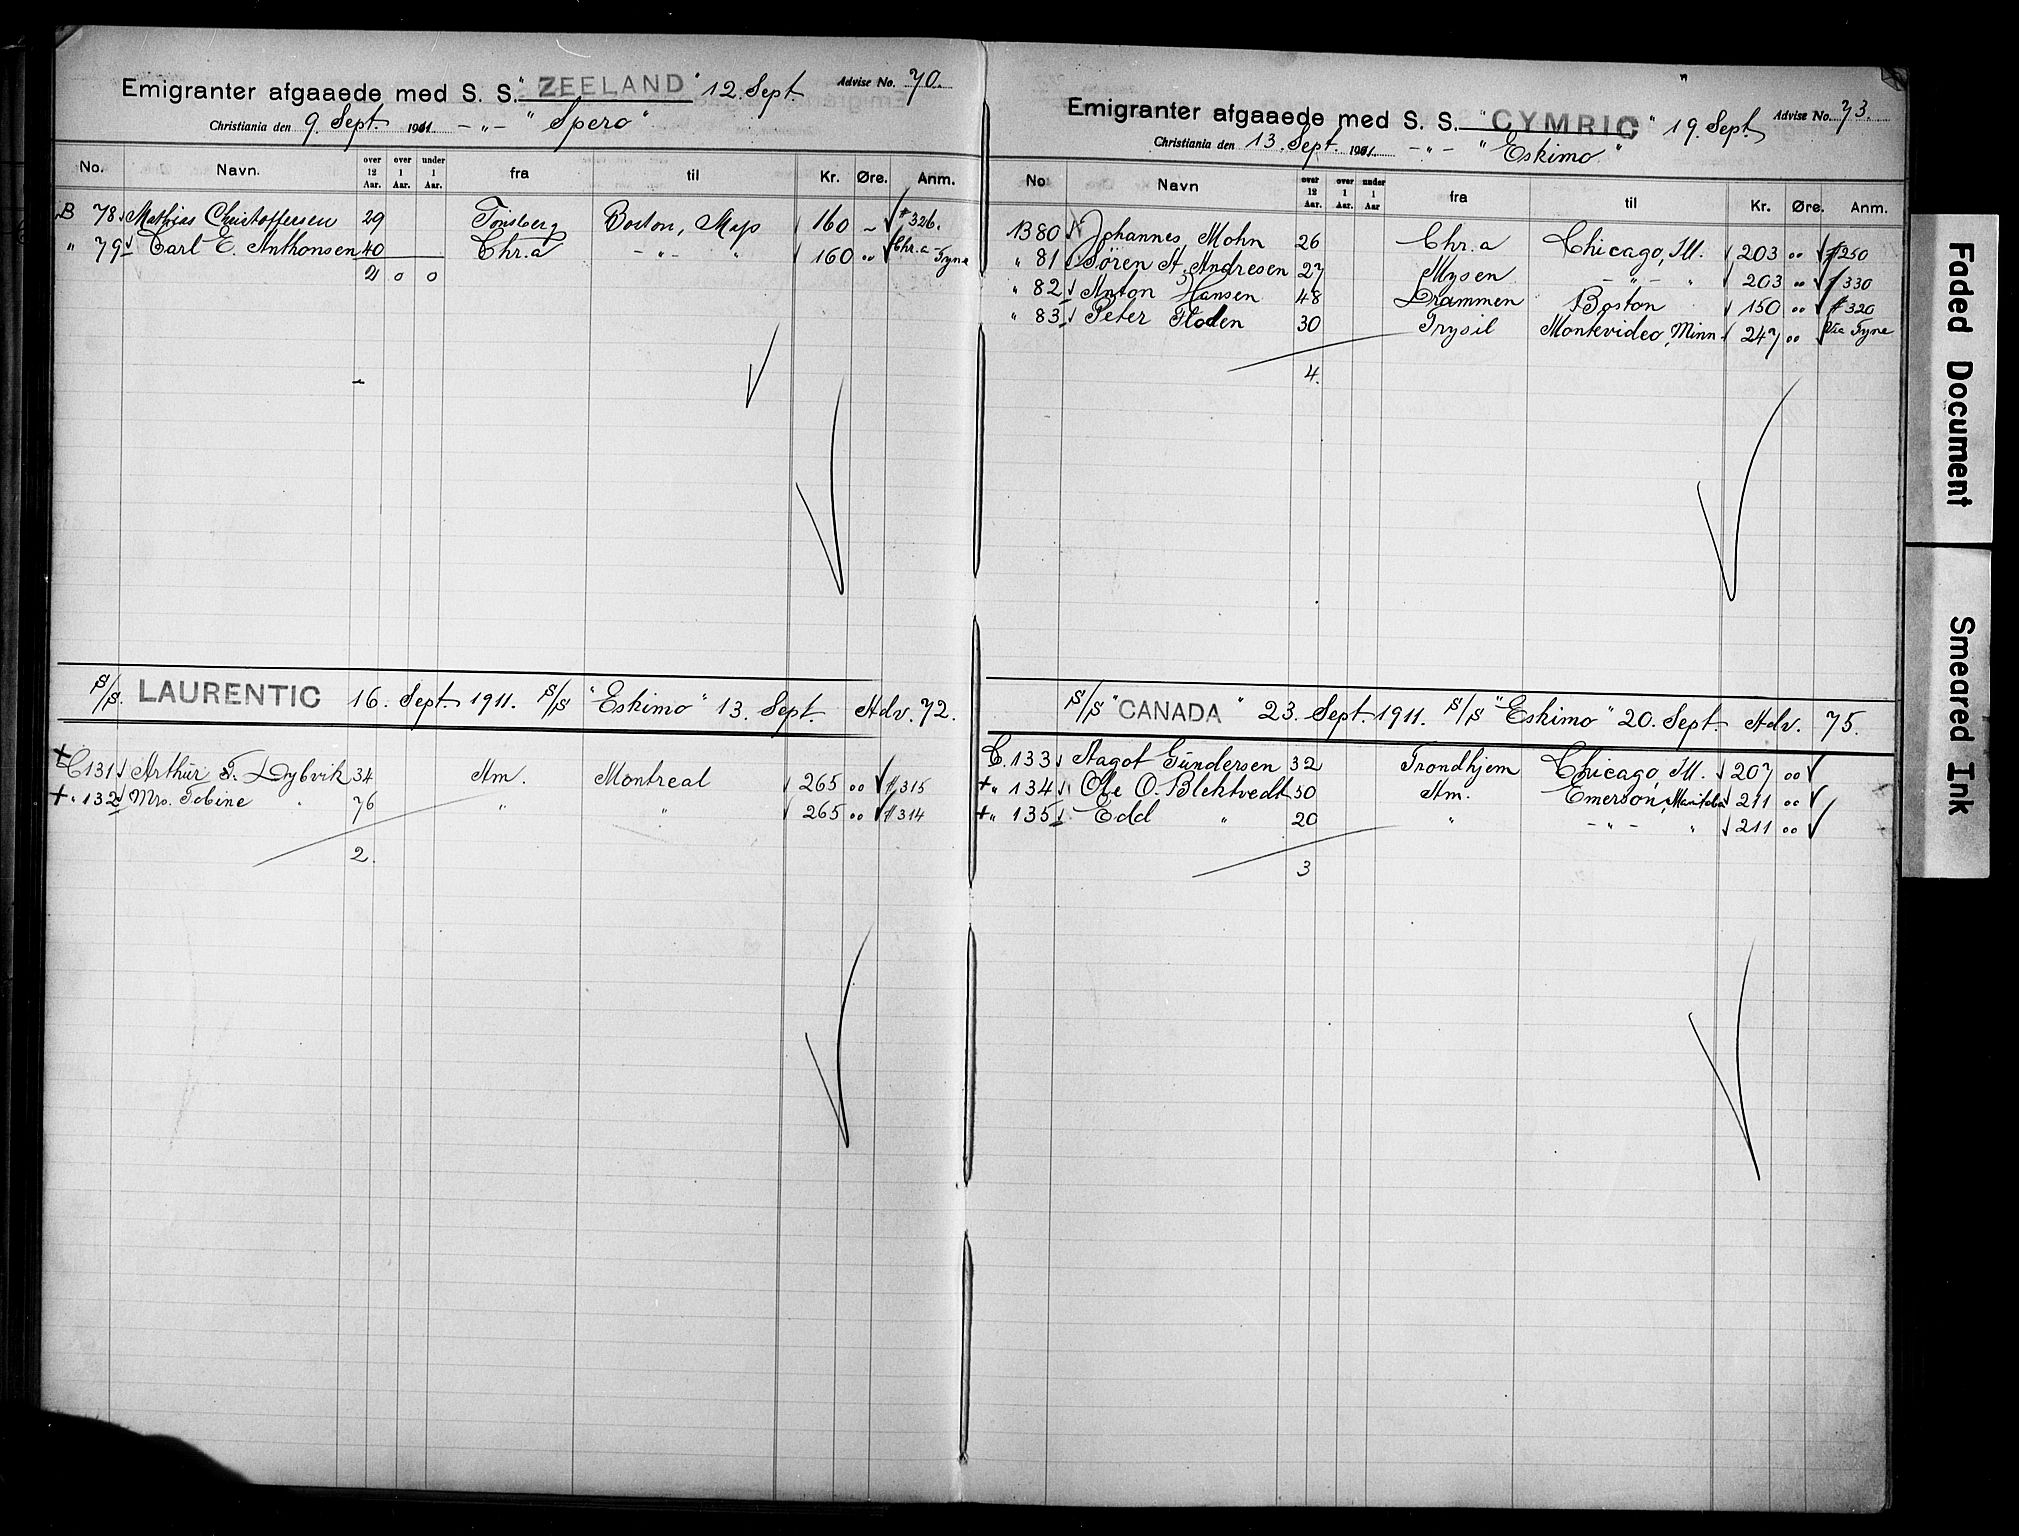 Emigranter afgaaede med S. S. "ZEELAND" 12. Sept Advise No. 70.
Christiania den 9. Sept. 1911 - " - "Spero"
No. Navn. over 12 Aar. over 1 Aar. under 1 Aar. fra til Kr. Øre. Anm.
B 78 Mathias Christoffersen 29 Tönsberg Boston, Mass 160 - # 326.
" 79 Carl E. Anthonsen 40 Chr.a - " - " 160 " Chr.a - Tyne
2 0 0
S/S. LAURENTIC 16. Sept. 1911. S/S "Eskimo" 13. Sept Adv. 72.
+ C131 Arthur F. Dybvik 34 Am. Montreal 265 " # 315
+ " 132 Mrs. Tobine " 76 " " 265 " # 314
2.
Emigranter afgaaede med S. S. "CYMRIC" 19. Sept Advise No. 73.
Christiania den 13. Sept. 1911 - " - "Eskimo"
No Navn over 12 Aar. over 1 Aar. under 1 Aar fra til Kr. Øre. Anm.
B 80 Johannes Mohn 26 Chr.a Chicago, Ill. 203 " # 250
" 81 Sören A. Andresen 27 Mysen - " - " 203 " # 330
" 82 Anton Hansen 48 Drammen Boston 150 " # 320
" 83 Peter Floden 30 Trysil Montevideo, Minn 247 " Via Tyne
4.
S/S "CANADA" 23. Sept. 1911. S/S "Eskimo" 20. Sept. Adv. 75.
C. 133 Aagot Gundersen 32 Trondhjem Chicago, Ill. 207 "
+ " 134 Ole O. Blektvedt 50 Am. Emerson, Manitoba 211 "
+ " 135 Edd " 20 " - " - " 211 "
3
Faded Document
Smeared Ink